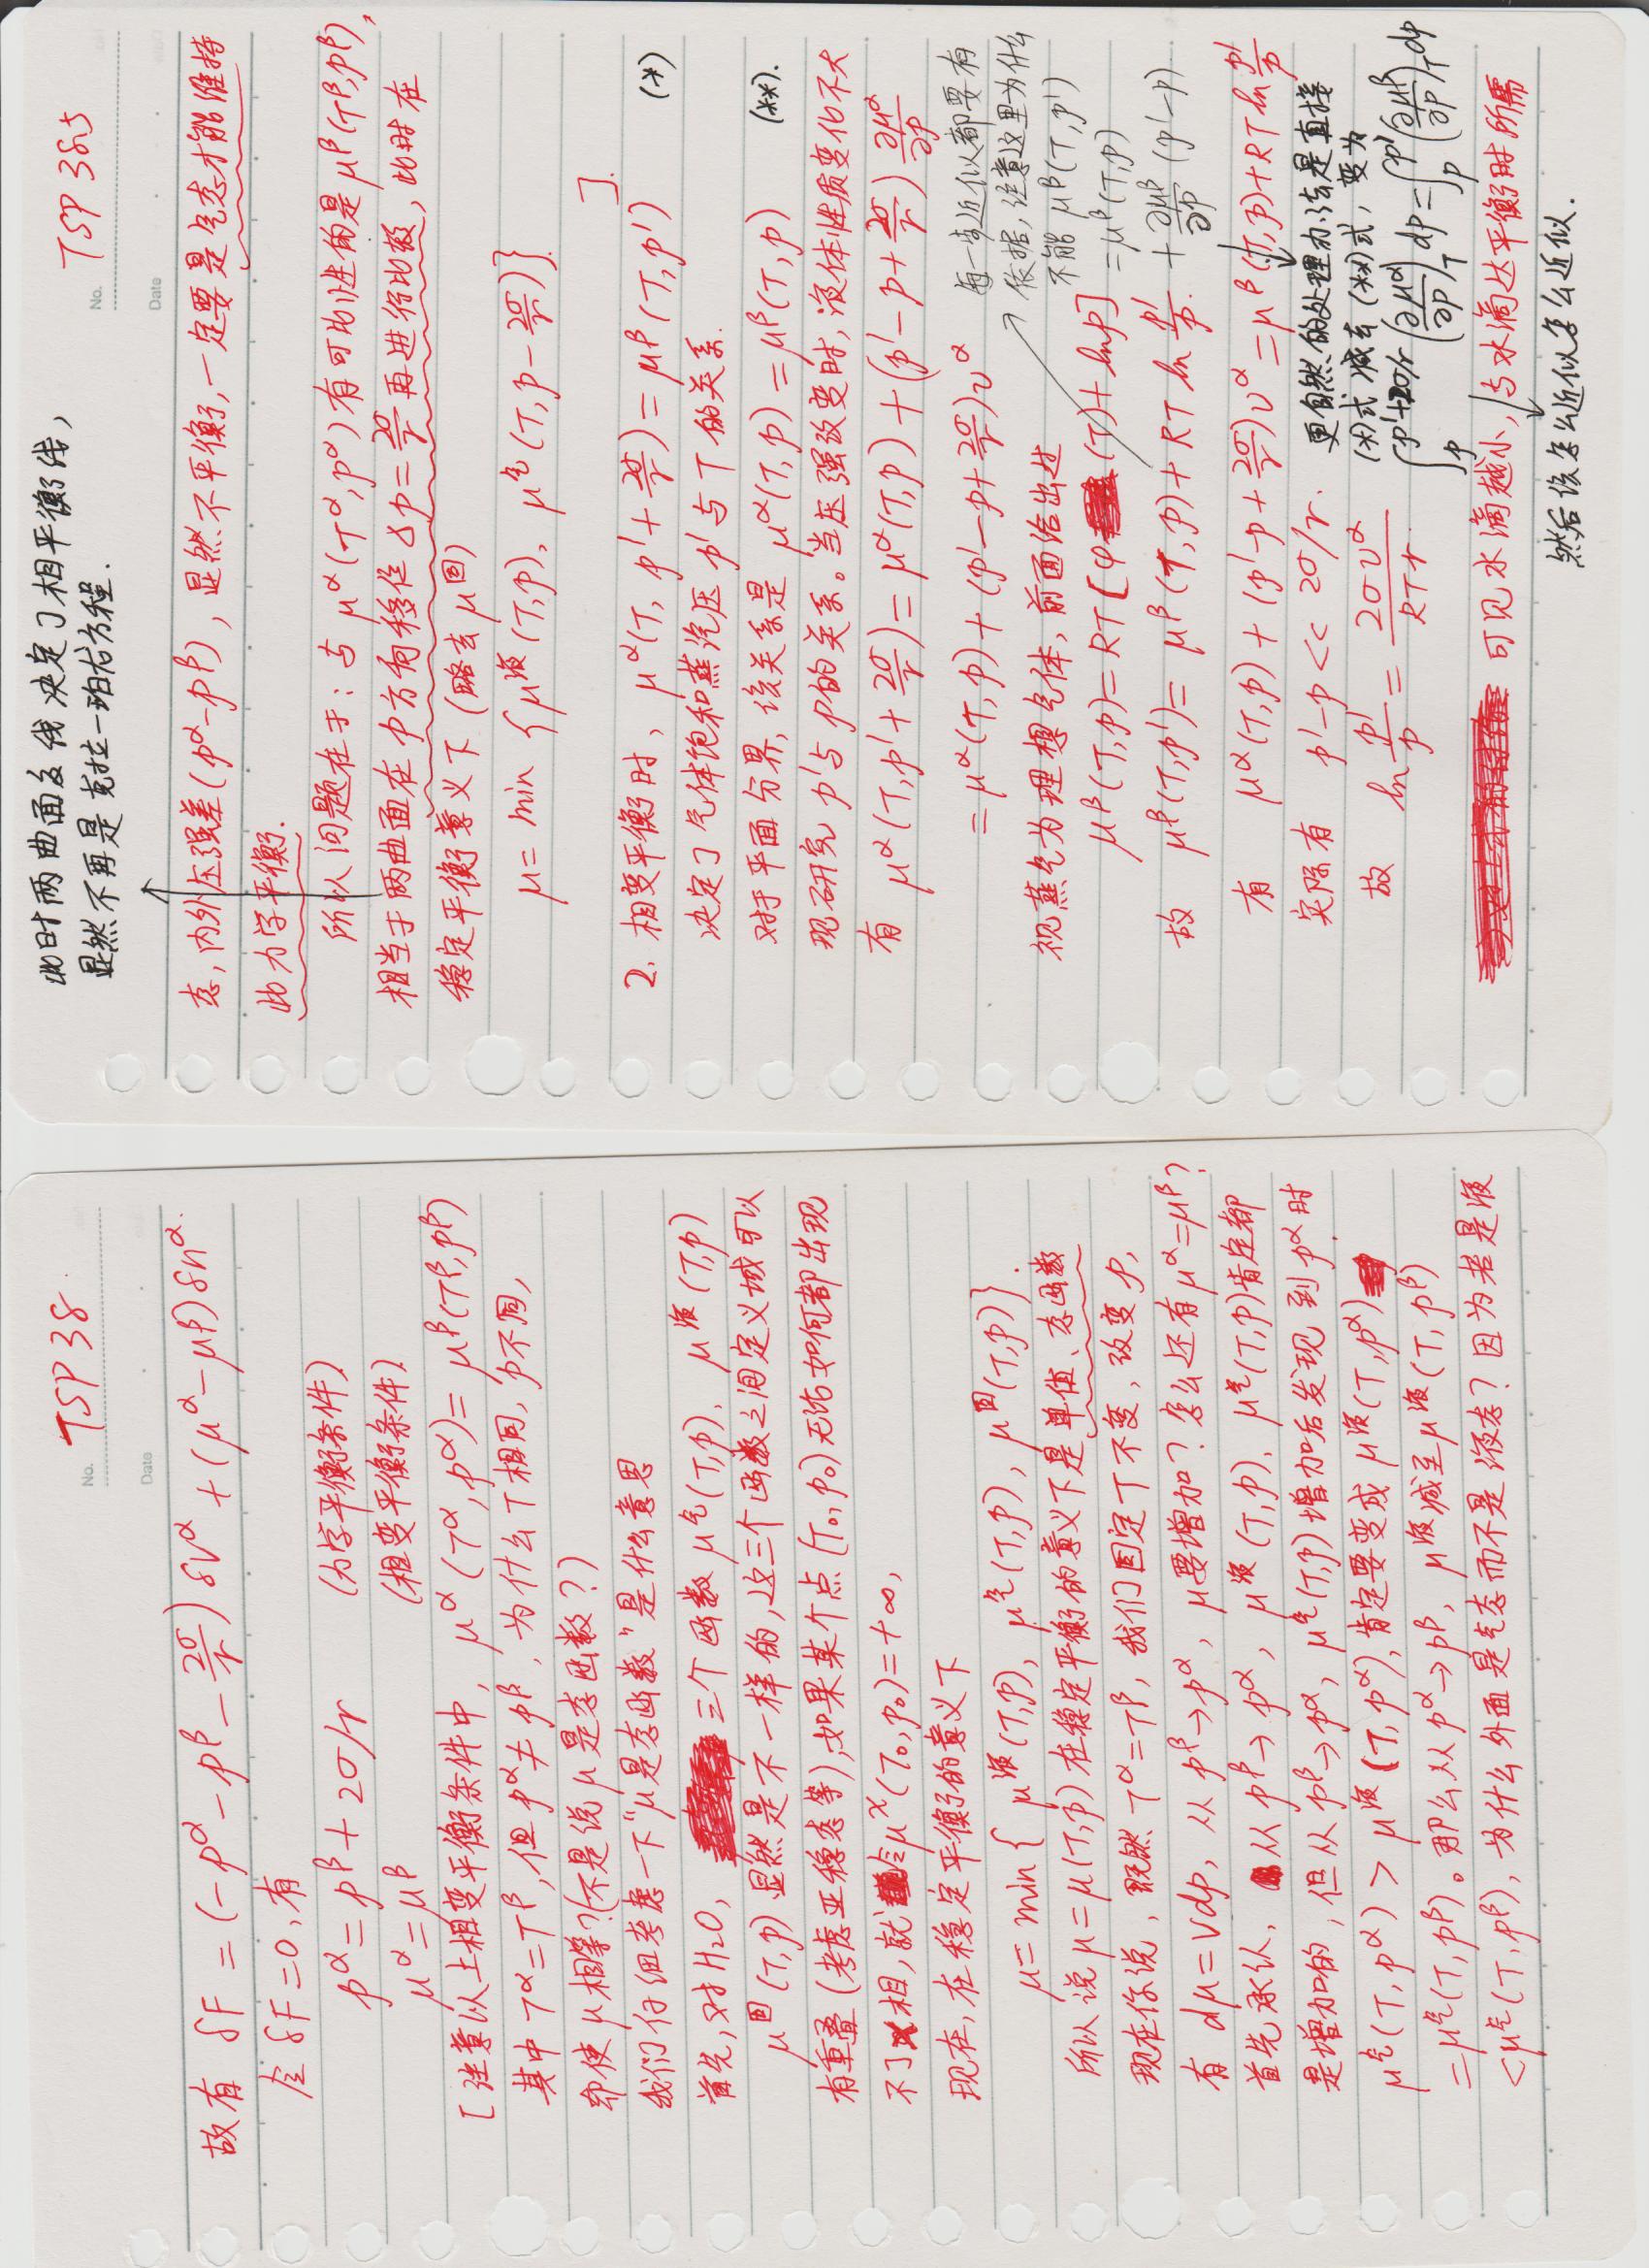 No. TSP 38
Date
故有 δF = (-p^α - p^β - 2σ/r) δV^α + (μ^α - μ^β) δn^α.
令 δF = 0, 有
p^α = p^β + 2σ/r (力学平衡条件)
μ^α = μ^β (相变平衡条件)
[注意以上相变平衡条件中, μ^α (T^α, p^α) = μ^β (T^β, p^β)
其中 T^α = T^β, 但 p^α ≠ p^β, 为什么 T 相同, p 不同,
却使 μ 相等?(不是说 μ 是态函数?)
我们仔细考虑一下"μ是态函数"是什么意思
首先, 对 H₂O, 三个函数 μ^气(T,p), μ^液(T,p)
μ^固(T,p) 显然是不一样的, 这三个函数之间定义域可以
有重叠 (考虑亚稳态等), 如果某个点 (T₀, p₀) 无论如何都出现
不了x相, 就令 μ^x (T₀, p₀) = +∞,
现在, 在稳定平衡的意义下
μ = min { μ^液(T,p), μ^气(T,p), μ^固(T,p) }.
所以说 μ = μ(T,p) 在稳定平衡的意义下是单值、态函数
现在你说, 既然 T^α = T^β, 我们固定 T 不变, 改变 p,
有 dμ = Vdp, 从 p^β → p^α, μ要增加? 怎么还有 μ^α = μ^β?
首先承认, 从 p^β → p^α, μ^液 (T,p), μ^气(T,p) 肯定都
是增加的, 但从 p^β → p^α, μ^气(T,p) 增加后发现 到 p^α 时
μ^气(T, p^α) > μ^液 (T, p^α), 肯定要变成 μ^液(T, p^α)
= μ^气(T, p^β)。那么从 p^α → p^β, μ^液减至 μ^液 (T, p^β)
< μ^气(T, p^β), 为什么外面是气态而不是液态? 因为若是液
此时两曲面交线决定了相平衡线,
显然不再是克拉一珀右方程.
No. TSP 38.5
Date
态, 内外压强差 (p^α - p^β), 显然不平衡, 一定要是气态才能维持
此力学平衡.
所以问题在于: 与 μ^α(T^α, p^α) 有可比性的是 μ^β (T^β, p^β),
相当于两曲面在 p 方向移位 δp = 2σ/r 再进行比较, 此时在
稳定平衡意义下 (略去 μ^固)
μ = min { μ^液(T,p), μ^气 (T, p - 2σ/r) }.
].
2. 相变平衡时, μ^α(T, p' + 2σ/r) = μ^β (T, p') (*)
决定了气体饱和蒸汽压 p' 与 T 的关系.
对于平面分界, 该关系是 μ^α(T, p) = μ^β(T, p) (**).
现研究 p' 与 p 的关系。当压强改变时, 液体性质变化不大
有 μ^α(T, p' + 2σ/r) = μ^α(T,p) + (p' - p + 2σ/r) ∂μ^α/∂p
= μ^α(T, p) + (p' - p + 2σ/r) v^α
每一步近似都要有
依据, 注意这里为什么
不能 μ^β(T, p')
= μ^β(T, p)
视蒸气为理想气体, 前面给出过
μ^β (T, p) = RT [φ (T) + ln p]
故 μ^β (T, p') = μ^β (T, p) + RT ln p'/p. + ∂μ^β/∂p (p' - p)
有 μ^α(T, p) + (p' - p + 2σ/r) v^α = μ^β (T, p) + RT ln p'/p
实际有 p' - p << 2σ/r.
更自然的处理办法是直接
(*)式 减去 (**)式, 变为
故 ln p'/p = 2σv^α/RTr.
∫_p^{p'+2σ/r} (∂μ^α/∂p)_T dp = ∫_p^{p'} (∂μ^β/∂p)_T dp
可见水滴越小, 与水滴达平衡时所需
然后该怎么近似怎么近似.